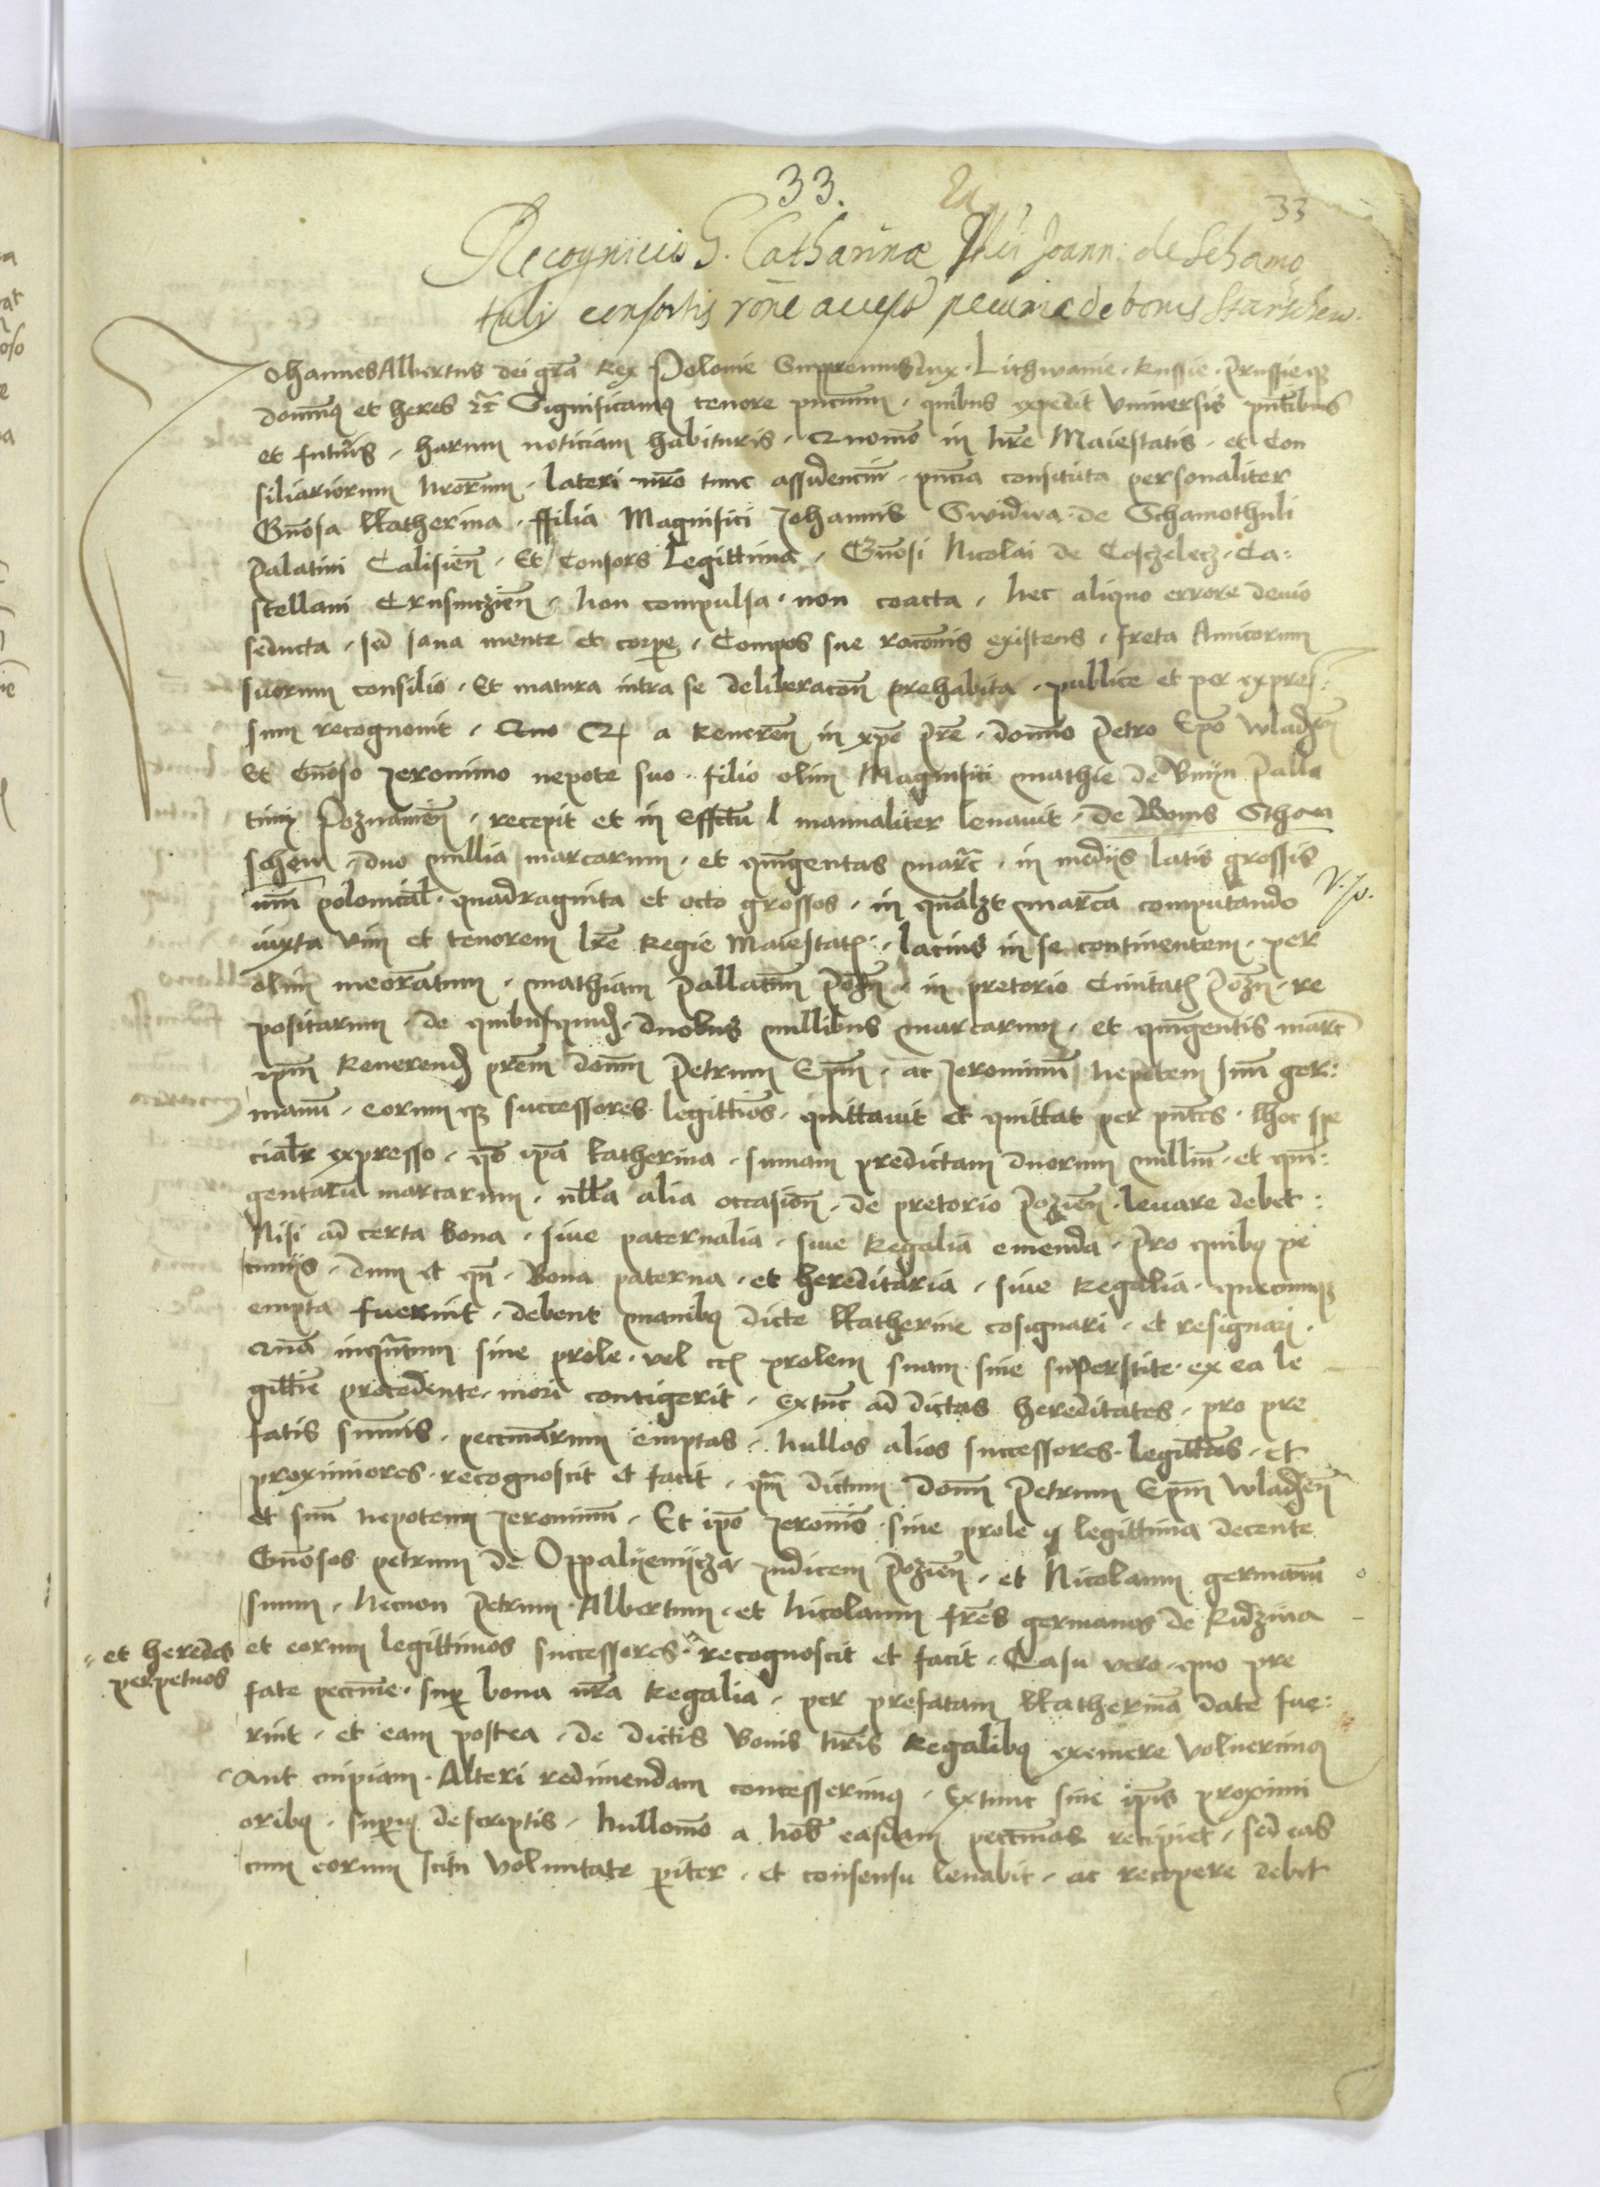 33.
33
Recognicio G. Catharinæ filiæ Joann: de Schamo
tuli consortis rone pecuniæ de bonis
Johannes Albertus dei gra Rex Polonie Supremus dux Lithwanie Russie Prussieq
domnq et heres zc Significamq tenore pncium quibus expedit Universis pntibus
et futuris harum noticiam habituris Quomo in nre Maiestatis et Con
siliariorum nrorum lateri nro tunc assidencim pncia constituta personaliter
Gnosa Katherina ffilia Magnifici Johannis Swidwa de Schamothuli
Palatini Calisien Et Consors Legittima Gnosi Nicolai de Cosczelecz Ca:
stellani Crusswiczien non compulsa non coacta nec aliquo errore devio
seducta sed sana mente et corpe Compos sue racionis existens freta Amicorum
suorum consilio Et matura intra se deliberacon prehabita publice et per expres:
sum recognovit Quo a Reveren in xpo pre domno Petro Epo Wladn
Et Gnoso Jeronimo nepote suo filio olim Magnifici mathie de Bnijn Palla
tini Poznanien recepit et in Effctu manualiter levavit de Bonis
schow duo millia marcarum et quigentas marc in medijs latis grossis
num polonical quadraginta et octo grossos in qualzt marca computando
iuxta vim et tenorem lre Regie Maiestat lacius in se continentem per
olim meoratum mathiam Pallatin Pozn in pretorio Civitat Pozn re
positarum de quibusquid duobus millibus marcarum et quigentis marc
ipm Reverend prem domn Petrum Epm ac Jeronimu nepotem suu ger:
manu eorumq successores legittios quittavit et quittat per pntes hoc spe
cialr expresso qd ipa katherina sumam predictam duorum milliu et qui:
gentaru marcarum nlla alia occasion de pretorio Pozien levare debet:
Nisi ad certa bona sive paternalia sive Regalia emenda Pro quibq pe
cunijs dum et qn Bona paterna et hereditaria sive Regalia quecumq
empta fuerint debent manibq dicte Katherine cosignari et resignari
Qua inqutum sine prole vel prolem suam sine superstite ex ea le
gittie procedente mori contigerit extuc ad dictas hereditates pro pre
fatis sumis pecuniarum emptas nullos alios successores legittios et
proximiores recognoscit et facit qm dictum domn Petrum Epm Wladn
et suu nepotem Jeronimu Et ipo Jeronis sine prole legittima decente
Gnosos petrum de Oppalijenijcza iudicem Pozien et Nicolaum germanu
suum necnon Petrum Albertum et Nicolaum fres germanos de Ridzina
et eorum legittimos successores recognoscit et facit Casu vero quo pre
et heredes
perpetuos
fate peccunie sup bona nra Regalia per prefatam Katherina date fue:
rint et eam postea de dictis Bonis nris Regalibq eximere voluerimq
Aut cuipiam Alteri redimendam concesserimq extunc sine ipis proximi
oribq supiq descriptis nullomo a nob easdem peccunias recipiet sed eas
cum eorum scitu voluntate piter et consensu levabit ac recipere debet